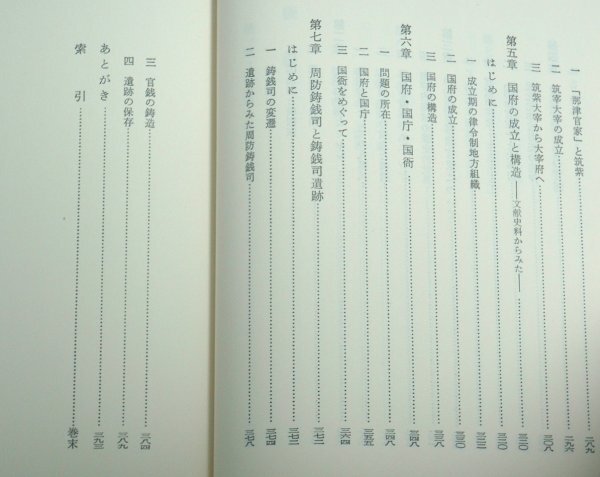 一 「那津官家」と筑紫 二八九
二 筑紫大宰の成立 二九六
三 筑紫大宰から大宰府へ 三〇八
第五章 国府の成立と構造——文献史料からみた—— 三二〇
はじめに 三二〇
一 成立期の律令制地方組織 三二三
二 国府の成立 三三〇
三 国府の構造 三三八
第六章 国府・国庁・国衙 三四八
一 問題の所在 三四八
二 国府と国庁 三五五
三 国衙をめぐって 三六四
第七章 周防鋳銭司と鋳銭司遺跡 三七二
はじめに 三七二
一 鋳銭司の変遷 三七四
二 遺跡からみた周防鋳銭司 三七八
三 官銭の鋳造 三八四
四 遺跡の保存 三八九
あとがき 三九三
索引 巻末